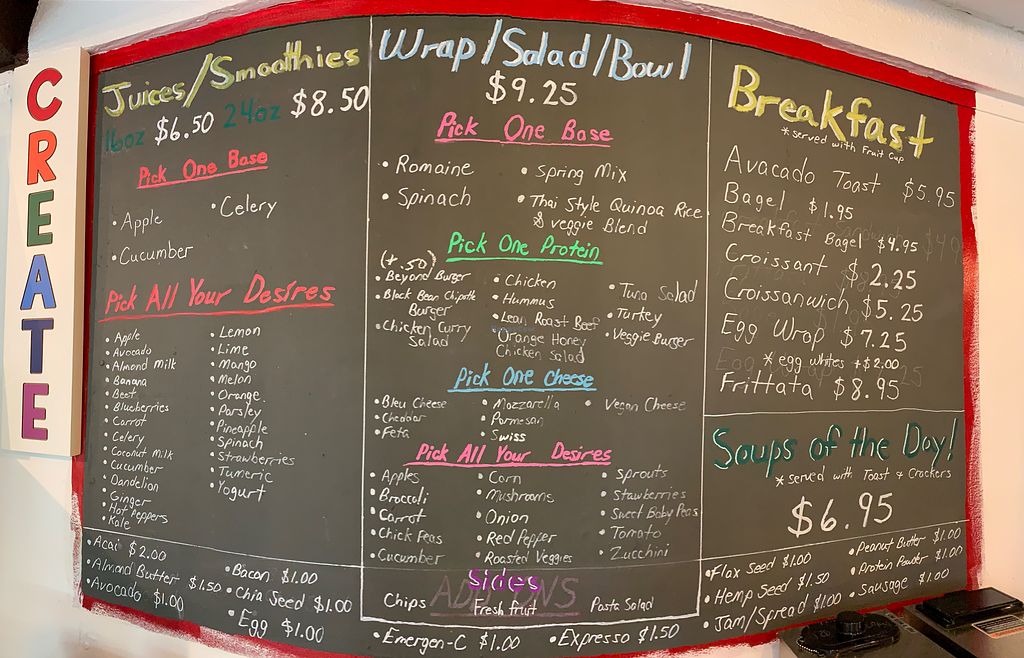 CREATE
Juices/Smoothies
16oz $6.50 24oz $8.50
Pick One Base
• Apple
• Celery
• Cucumber
Pick All Your Desires
• Apple
• Avocado
• Almond milk
• Banana
• Beet
• Blueberries
• Carrot
• Celery
• Coconut Milk
• Cucumber
• Dandelion
• Ginger
• Hot Peppers
• Kale
• Lemon
• Lime
• Mango
• Melon
• Orange
• Parsley
• Pineapple
• Spinach
• Strawberries
• Tumeric
• Yogurt
Wrap/Salad/Bowl
$9.25
Pick One Base
• Romaine
• Spinach
• Spring Mix
• Thai Style Quinoa Rice
& veggie Blend
Pick One Protein
(+ .50)
• Beyond Burger
• Black Bean Chipotle
Burger
• Chicken Curry
Salad
• Chicken
• Hummus
• Lean Roast Beef
Orange Honey
Chicken Salad
• Tuna Salad
• Turkey
• Veggie Burger
Pick One Cheese
• Bleu Cheese
• Cheddar
• Feta
• Mozzarella
• Parmesan
• Swiss
• Vegan Cheese
Pick All Your Desires
• Apples
• Broccoli
• Carrot
• Chick Peas
• Cucumber
• Corn
• Mushrooms
• Onion
• Red Pepper
• Roasted Veggies
• Sprouts
• Stawberries
• Sweet Baby Peas
• Tomato
• Zucchini
Breakfast
* served with Fruit Cup
Avocado Toast $5.95
Bagel $1.95
Breakfast Bagel $4.95
Croissant $2.25
Croissanwich $5.25
Egg Wrap $7.25
* egg whites +$2.00
Frittata $8.95
Soups of the Day!
* served with Toast & Crackers
$6.95
• Acai $2.00
• Almond Butter $1.50
• Avocado $1.00
• Bacon $1.00
• Chia Seed $1.00
• Egg $1.00
ADD ONS
Sides
Chips Fresh fruit Pasta Salad
• Emergen-C $1.00 • Expresso $1.50
• Flax Seed $1.00
• Hemp Seed $1.50
• Jam/Spread $1.00
• Peanut Butter $1.00
• Protein Powder $1.00
• Sausage $1.00